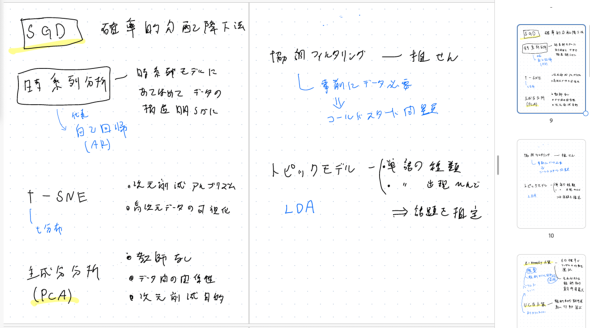 SGD 確率的勾配降下法
時系列分析 — 時系列モデルに
あてはめて データの
構造 明らかに
代表
自己回帰
(AR)
t-SNE
・次元削減 アルゴリズム
・高次元データの可視化
t分布
主成分分析
(PCA)
・教師なし
・データ間の関係性
・次元削減 目的
協調フィルタリング — 推せん
事前にデータ必要
⇓
コールドスタート問題
トピックモデル — ・単語の種類
・ 〃 出現ひんど
LDA
⇒ 話題を推定
9
10